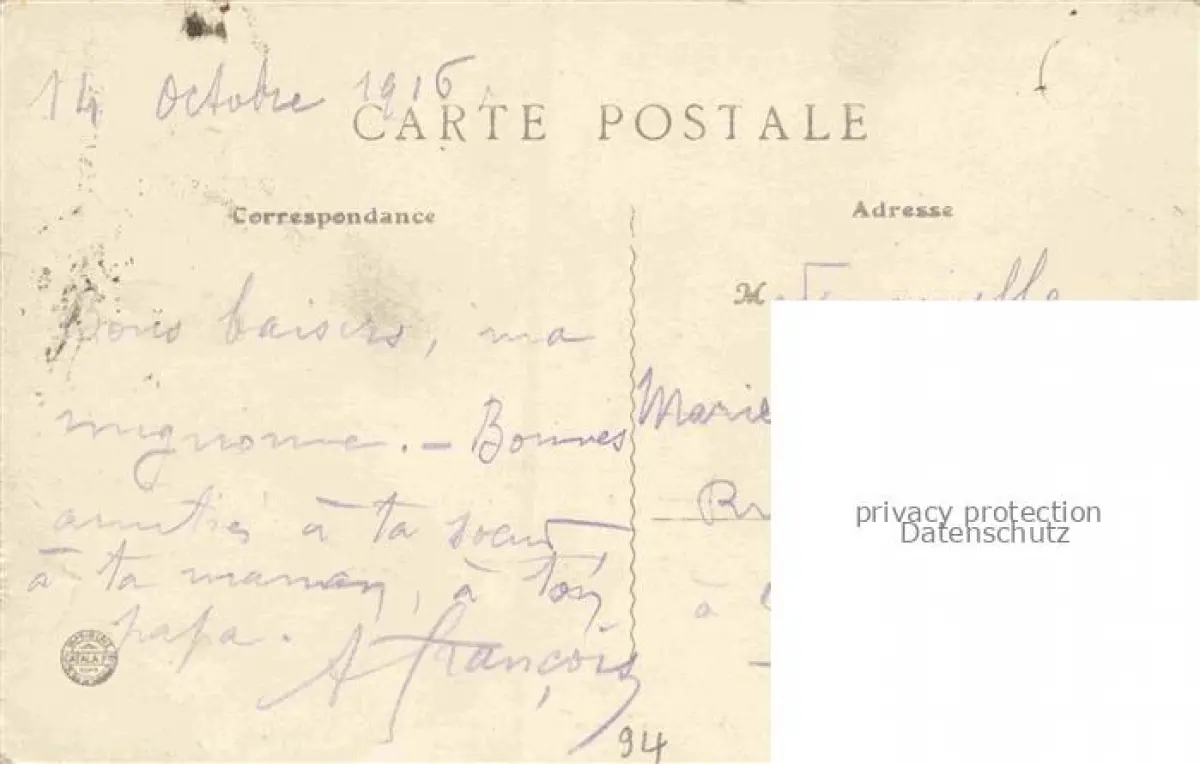 14 Octobre 1916.
CARTE POSTALE
Correspondance
Bons baisers, ma
mignonne. — Bonnes
amitiés à ta soeur,
à ta maman, à ton
papa.
A François
CATALA
94
Adresse
M
Marie
Br
à
privacy protection
Datenschutz